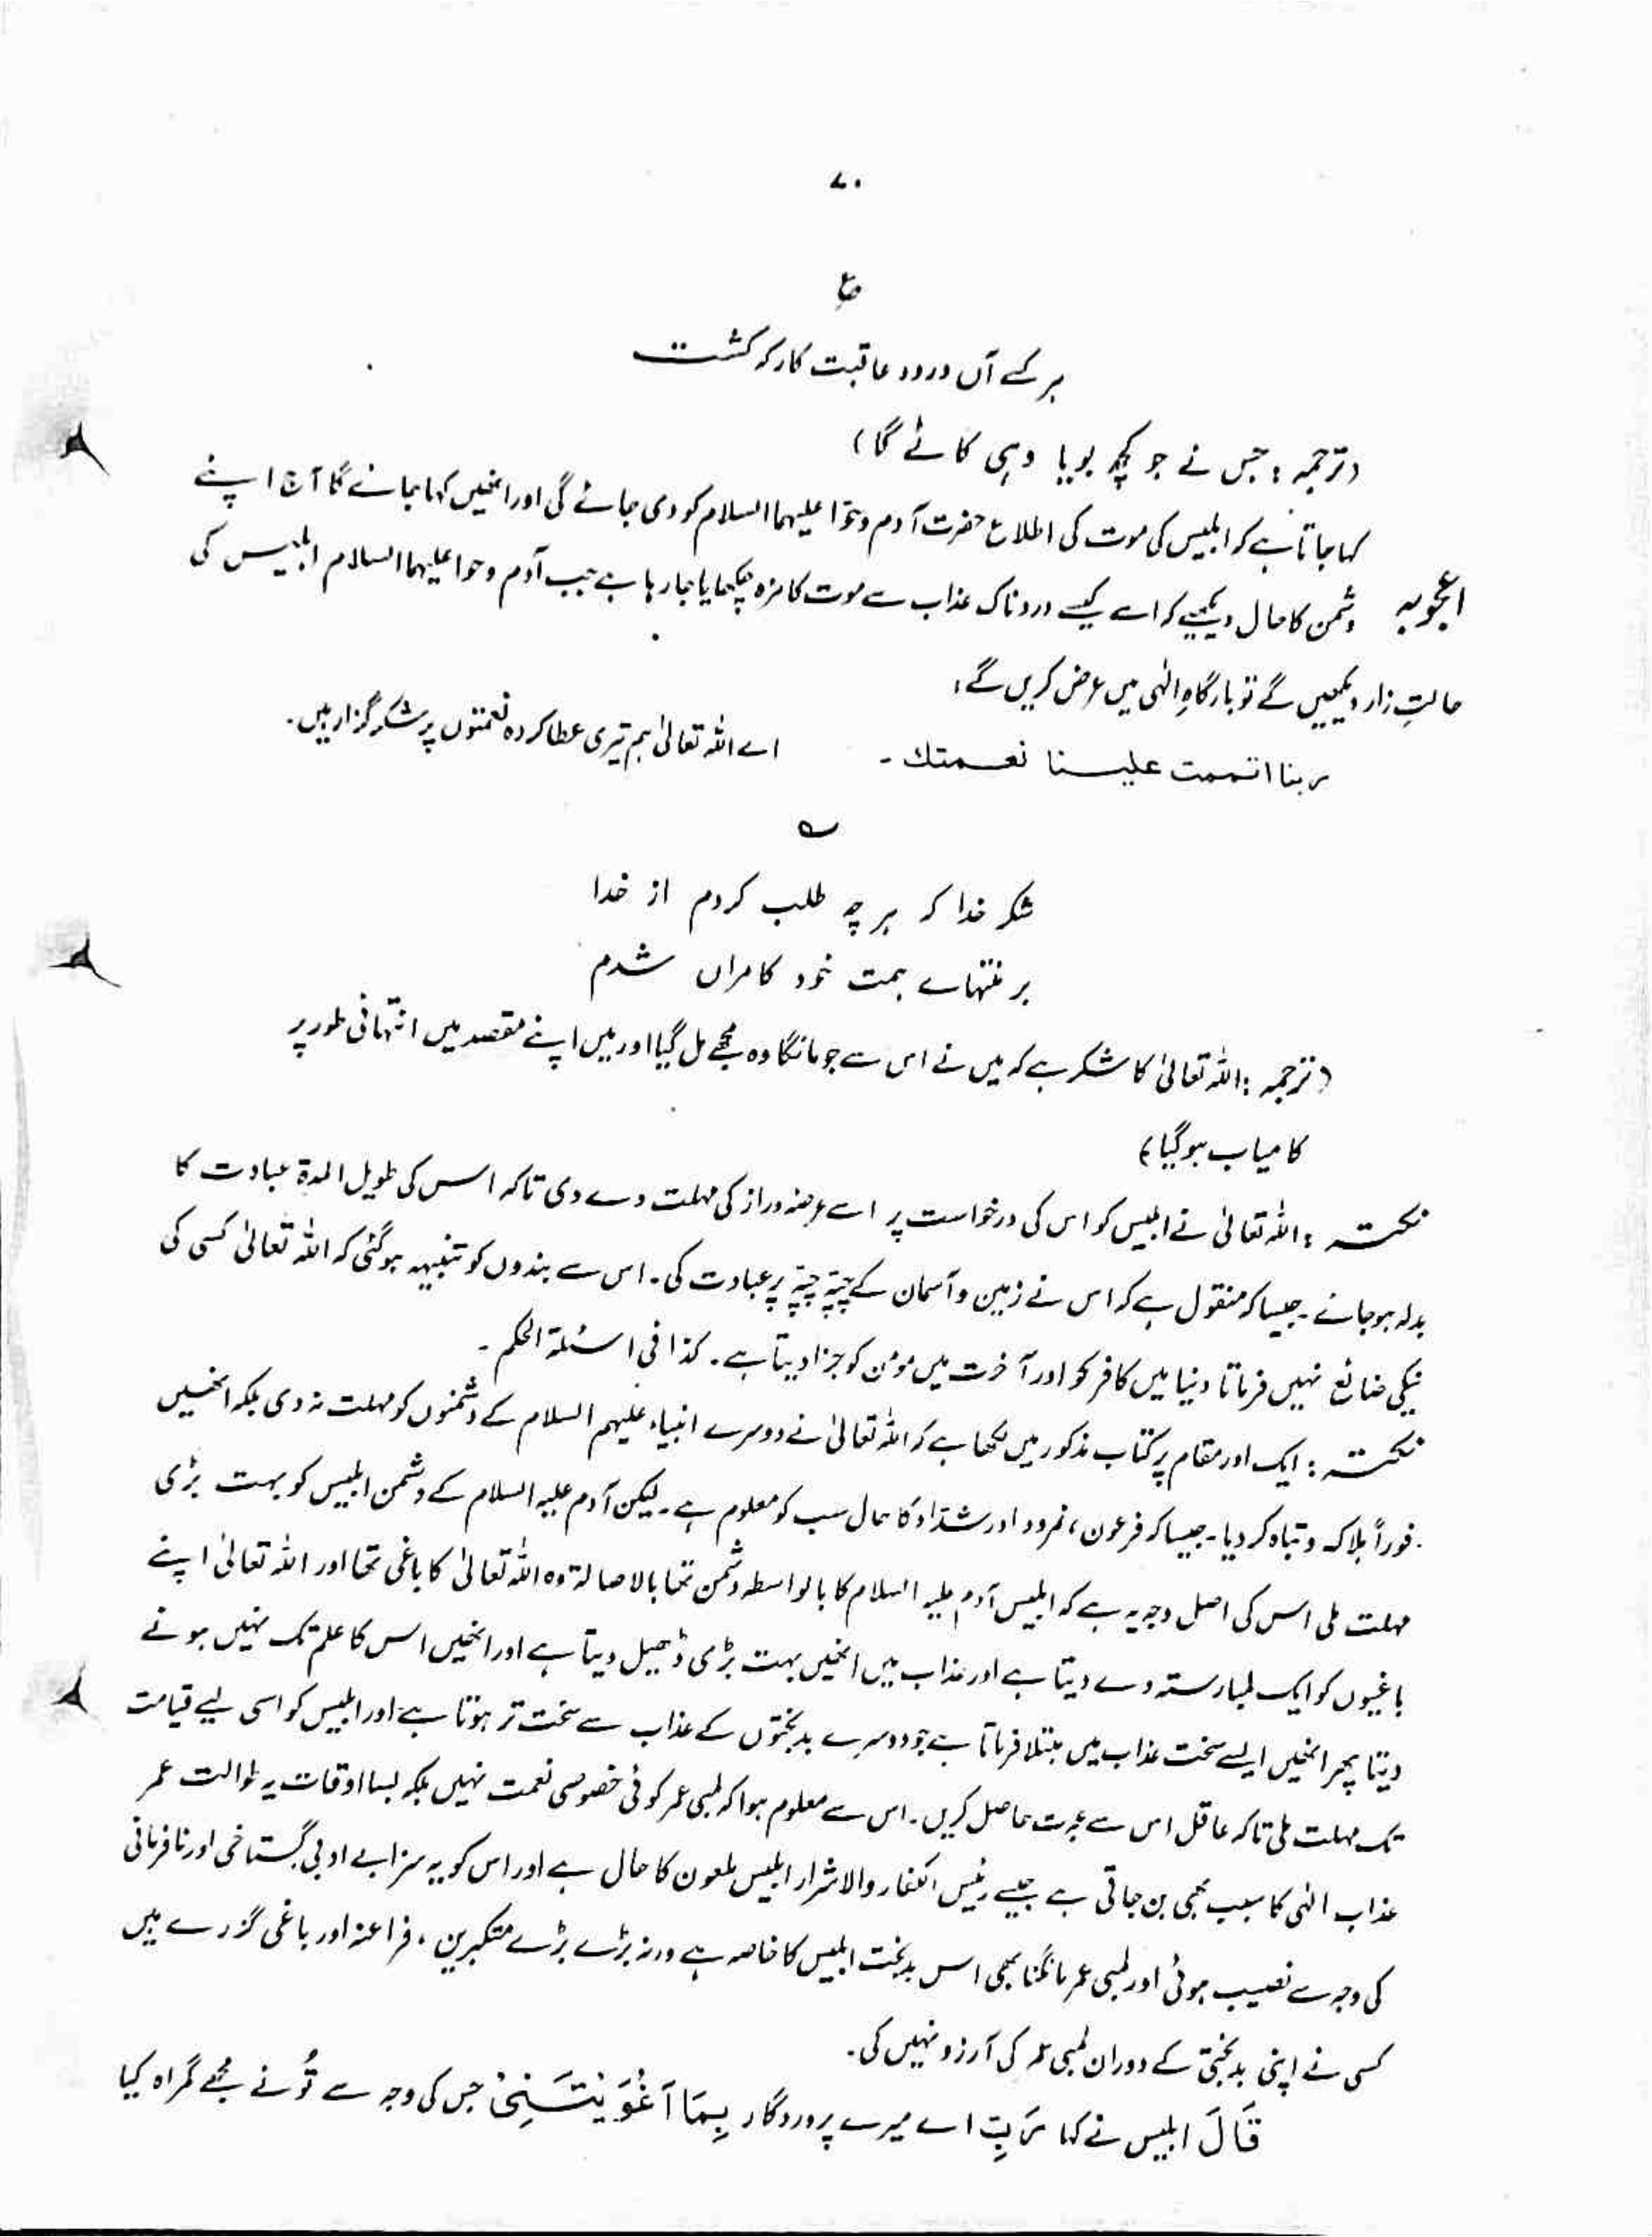 ۷۰
ع
ہر کسے آں درود عاقبت کار کہ کشت
(ترجمہ : جس نے جو کچھ بویا وہی کاٹے گا)
کہا جاتا ہے کہ ابلیس کی موت کی اطلاع حضرت آدم و حوّا علیہما السلام کو دی جائے گی اور انھیں کہا جائے گا آج اپنے
اعجوبہ دشمن کا حال دیکھیے کہ اسے کیسے دردناک عذاب سے موت کا مزہ چکھایا جا رہا ہے جب آدم و حوا علیہما السلام ابلیس کی
حالتِ زار دیکھیں گے تو بارگاہِ الٰہی میں عرض کریں گے :
ربنا اتممت علینا نعمتك ۔ اے اللہ تعالیٰ ہم تیری عطا کردہ نعمتوں پر شکر گزار ہیں ۔
ے
شکر خدا کہ ہر چہ طلب کردم از خدا
بر منتہاے ہمت خود کامراں شدم
(ترجمہ : اللہ تعالیٰ کا شکر ہے کہ میں نے اس سے جو مانگا وہ مجھے مل گیا اور میں اپنے مقصد میں انتہائی طور پر
کامیاب ہو گیا)
نکتہ : اللہ تعالیٰ نے ابلیس کو اس کی درخواست پر اسے عرصہ دراز کی مہلت دے دی تاکہ اس کی طویل المدۃ عبادت کا
بدلہ ہو جائے ۔ جیسا کہ منقول ہے کہ اس نے زمین و آسمان کے چپّہ چپّہ پر عبادت کی ۔ اس سے بندوں کو تنبیہہ ہو گئی کہ اللہ تعالیٰ کسی کی
نیکی ضائع نہیں فرماتا دنیا میں کافر کو اور آخرت میں مومن کو جزا دیتا ہے ۔ کذا فی اسئلۃ الحکم ۔
نکتہ : ایک اور مقام پر کتاب مذکور میں لکھا ہے کہ اللہ تعالیٰ نے دوسرے انبیاء علیہم السلام کے دشمنوں کو مہلت نہ دی بلکہ انھیں
فوراً ہلاک و تباہ کر دیا ۔ جیسا کہ فرعون ، نمرود اور شدّاد کا حال سب کو معلوم ہے ۔ لیکن آدم علیہ السلام کے دشمن ابلیس کو بہت بڑی
مہلت ملی اس کی اصل وجہ یہ ہے کہ ابلیس آدم علیہ السلام کا بالواسطہ دشمن تھا بالاصالۃ وہ اللہ تعالیٰ کا باغی تھا اور اللہ تعالیٰ اپنے
باغیوں کو ایک لمبا رستہ دے دیتا ہے اور عذاب میں انھیں بہت بڑی ڈھیل دیتا ہے اور انھیں اس کا علم تک نہیں ہونے
دیتا پھر انھیں ایسے سخت عذاب میں مبتلا فرماتا ہے جو دوسرے بدبختوں کے عذاب سے سخت تر ہوتا ہے اور ابلیس کو اسی لیے قیامت
تک مہلت ملی تاکہ عاقل اس سے عبرت حاصل کریں ۔ اس سے معلوم ہوا کہ لمبی عمر کوئی خصوصی نعمت نہیں بلکہ بسا اوقات یہ طوالت عمر
عذاب الٰہی کا سبب بھی بن جاتی ہے جیسے رئیس الکفار والاشرار ابلیس ملعون کا حال ہے اور اس کو یہ سزا بے ادبی گستاخی اور نافرمانی
کی وجہ سے نصیب ہوئی اور لمبی عمر مانگنا بھی اس بدبخت ابلیس کا خاصہ ہے ورنہ بڑے بڑے متکبرین ، فراعنہ اور باغی گزرے ہیں
کسی نے اپنی بدبختی کے دوران لمبی عمر کی آرزو نہیں کی ۔
قَالَ ابلیس نے کہا رَبِّ اے میرے پروردگار بِمَا أَغْوَيْتَنِیْ جس کی وجہ سے تُو نے مجھے گمراہ کیا